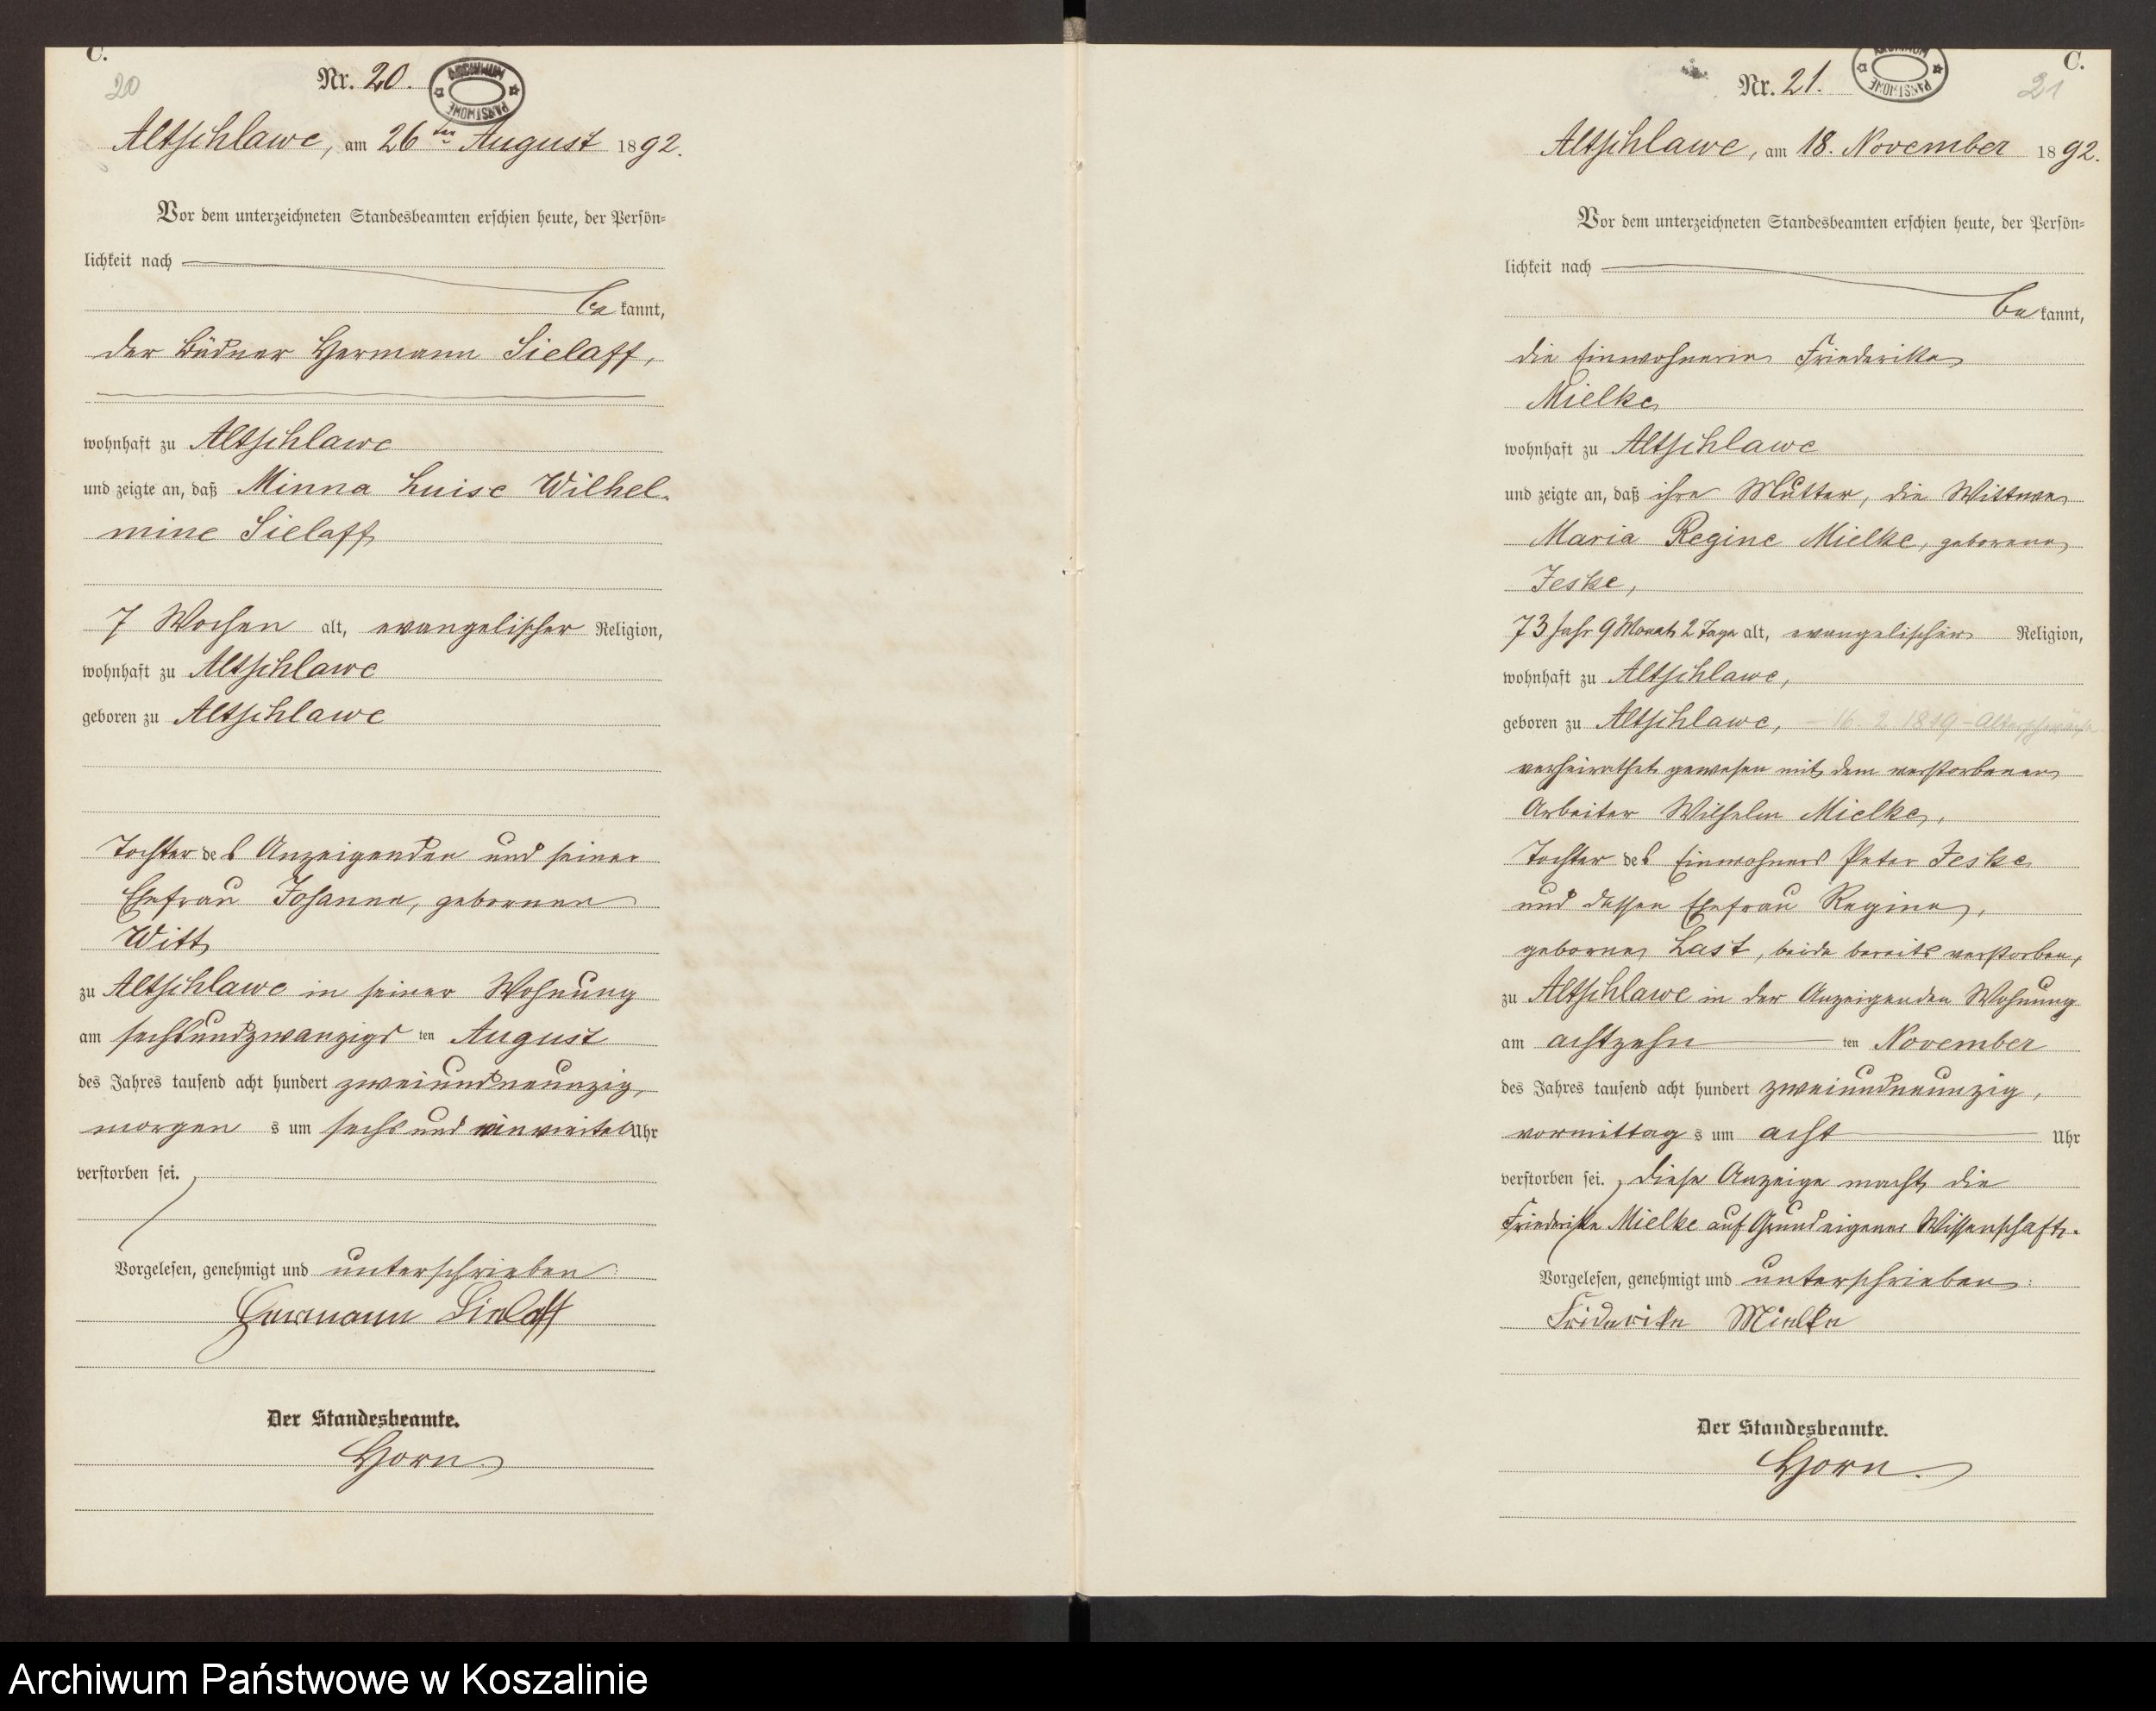 C.
20
Nr. 20.
ARCHIWUM PAŃSTWOWE
Altschlawe, am 26ten August 1892.
Vor dem unterzeichneten Standesbeamten erschien heute, der Persön-
lichkeit nach
bekannt,
der Büdner Hermann Sielaff,
wohnhaft zu Altschlawe
und zeigte an, daß Minna Luise Wilhel-
mine Sielaff
7 Wochen alt, evangelischer Religion,
wohnhaft zu Altschlawe
geboren zu Altschlawe
Tochter des Anzeigenden und seiner
Ehefrau Johanna, gebornen
Witt
zu Altschlawe in seiner Wohnung
am sechsundzwanzigsten August
des Jahres tausend acht hundert zweiundneunzig,
morgens um sechs und einviertel Uhr
verstorben sei.
Vorgelesen, genehmigt und unterschrieben:
Hermann Sielaff
Der Standesbeamte.
Horn
C.
21
Nr. 21.
ARCHIWUM PAŃSTWOWE
Altschlawe, am 18. November 1892.
Vor dem unterzeichneten Standesbeamten erschien heute, der Persön-
lichkeit nach
bekannt,
die Einwohnerin Friederike
Mielke
wohnhaft zu Altschlawe
und zeigte an, daß ihre Mutter, die Wittwe
Maria Regine Mielke, geborene
Jeske,
73 Jahr 9 Monat 2 Tage alt, evangelischer Religion,
wohnhaft zu Altschlawe,
geboren zu Altschlawe, – 16. 2. 1819 – Altersschwäche
verheirathet gewesen mit dem verstorbenen
Arbeiter Wilhelm Mielke,
Tochter des Einwohners Peter Jeske
und dessen Ehefrau Regine,
geborne Last, beide bereits verstorben,
zu Altschlawe in der Anzeigenden Wohnung
am achtzehnten November
des Jahres tausend acht hundert zweiundneunzig,
vormittags um acht Uhr
verstorben sei. diese Anzeige macht die
Friederike Mielke auf Grund eigener Wissenschaft.
Vorgelesen, genehmigt und unterschrieben:
Friderike Mielke
Der Standesbeamte.
Horn.
Archiwum Państwowe w Koszalinie